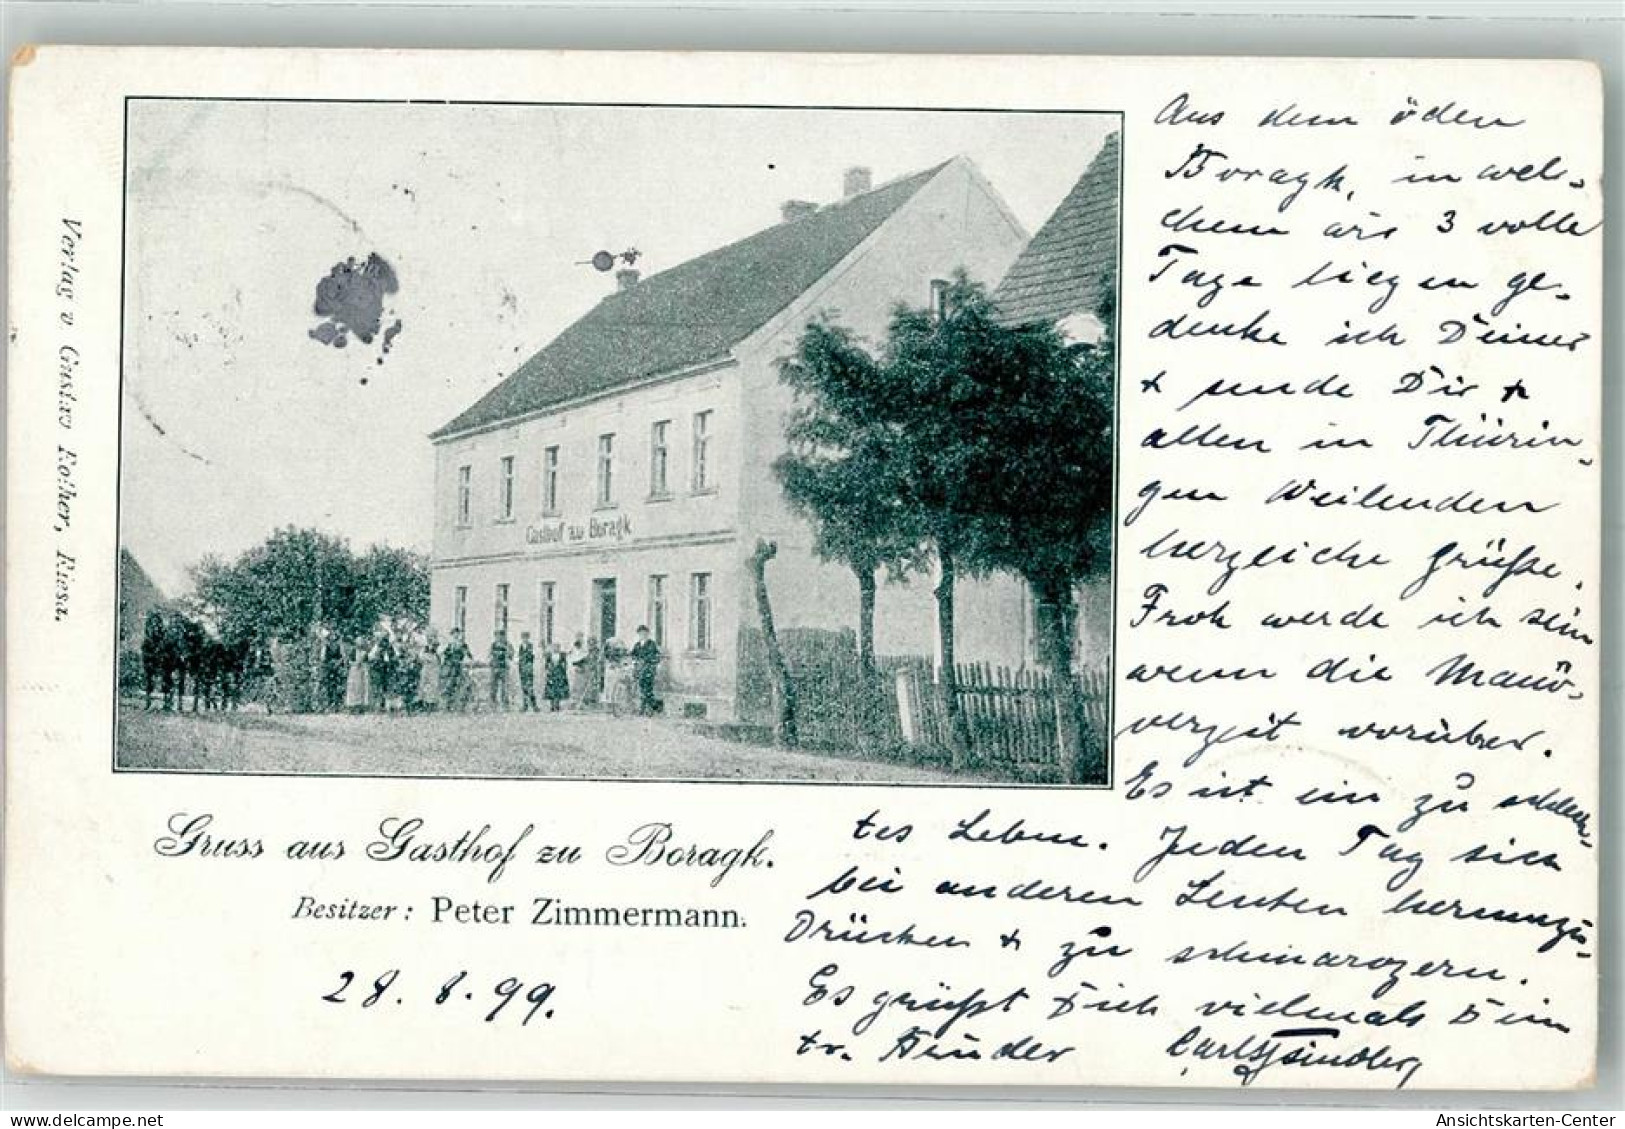 Verlag v Gustav Rother, Riesa.
Gasthof zu Boragk
Gruss aus Gasthof zu Boragk.
Besitzer: Peter Zimmermann.
28. 8. 99.
Aus dem öden
Boragk, in wel-
chem wir 3 volle
Tage liegen ge-
denke ich Deiner
+ sende Dir +
allen in Thürin-
gen Weilenden
herzliche Grüße.
Froh werde ich sein
wenn die Manö-
verzeit vorüber.
Es ist ein zu schlech-
tes Leben. Jeden Tag sich
bei anderen Leuten herumzu-
Drücken + zu schmarozern.
Es grüßt Dich vielmals Dein
tr. Bruder Carl
Ansichtskarten-Center